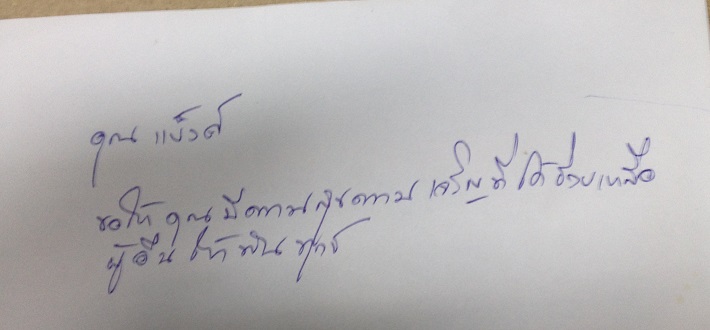 คุณ แบงค์
ขอให้ คุณ มีความสุขความ เจริญ ที่ ได้ ช่วยเหลือ
ผู้อื่น ให้ พ้น ทุกข์